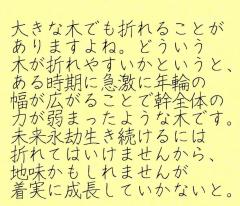 大きな木でも折れることが
ありますよね。どういう
木が折れやすいかというと、
ある時期に急激に年輪の
幅が広がることで幹全体の
力が弱まったような木です。
未来永劫生き続けるには
折れてはいけませんから、
地味かもしれませんが
着実に成長していかないと。